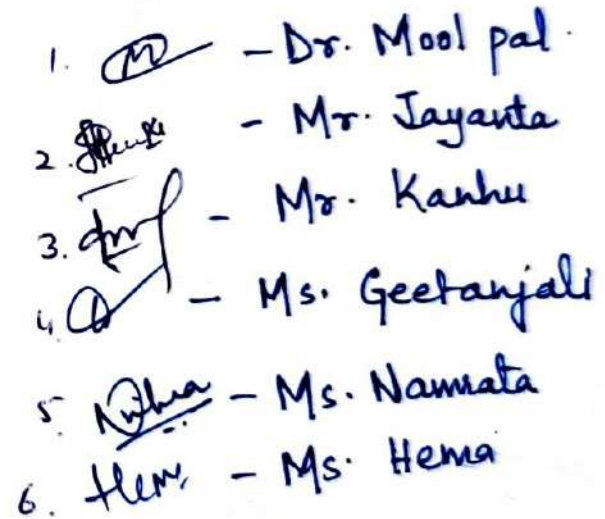 1. - Dr. Mool pal.
2. - Mr. Jayanta
3. - Mr. Kanhu
4. - Ms. Geetanjali
5. - Ms. Namrata
6. Hem - Ms. Hema